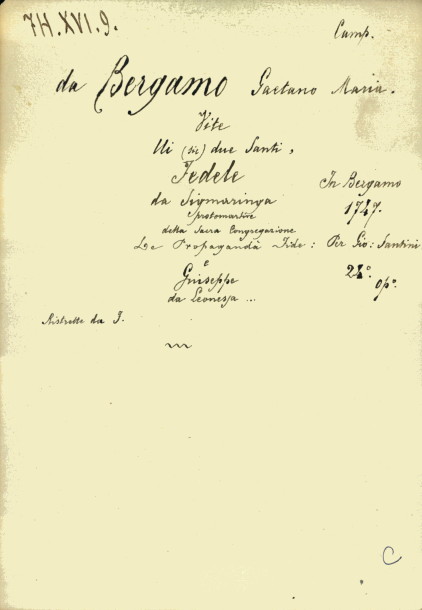 7H.XVI.9.
Camp.
da Bergamo Gaetano Maria.
Vite
Ui (sic) due Santi,
Fedele
In Bergamo
da Sigmaringa
1747.
protomartire
della Sacra Congregazione
De Propaganda Fide: Per Gio: Santini
e
Giuseppe
24°. op°.
da Leonessa ...
Ristrette da J.
C